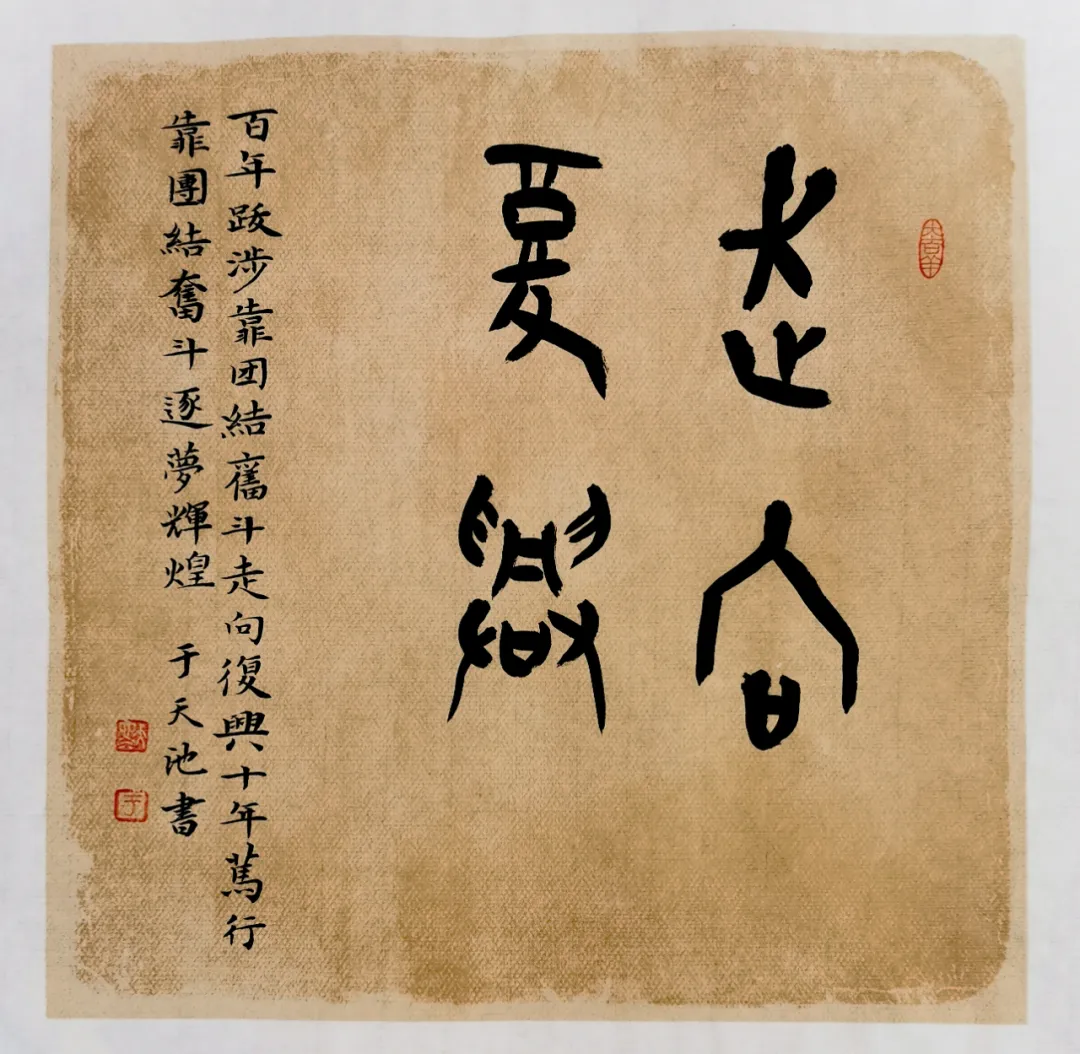 走向
复興
百年跋涉靠团結奮斗走向復興十年篤行
靠團結奮斗逐夢輝煌 于天池書
大吉羊
于